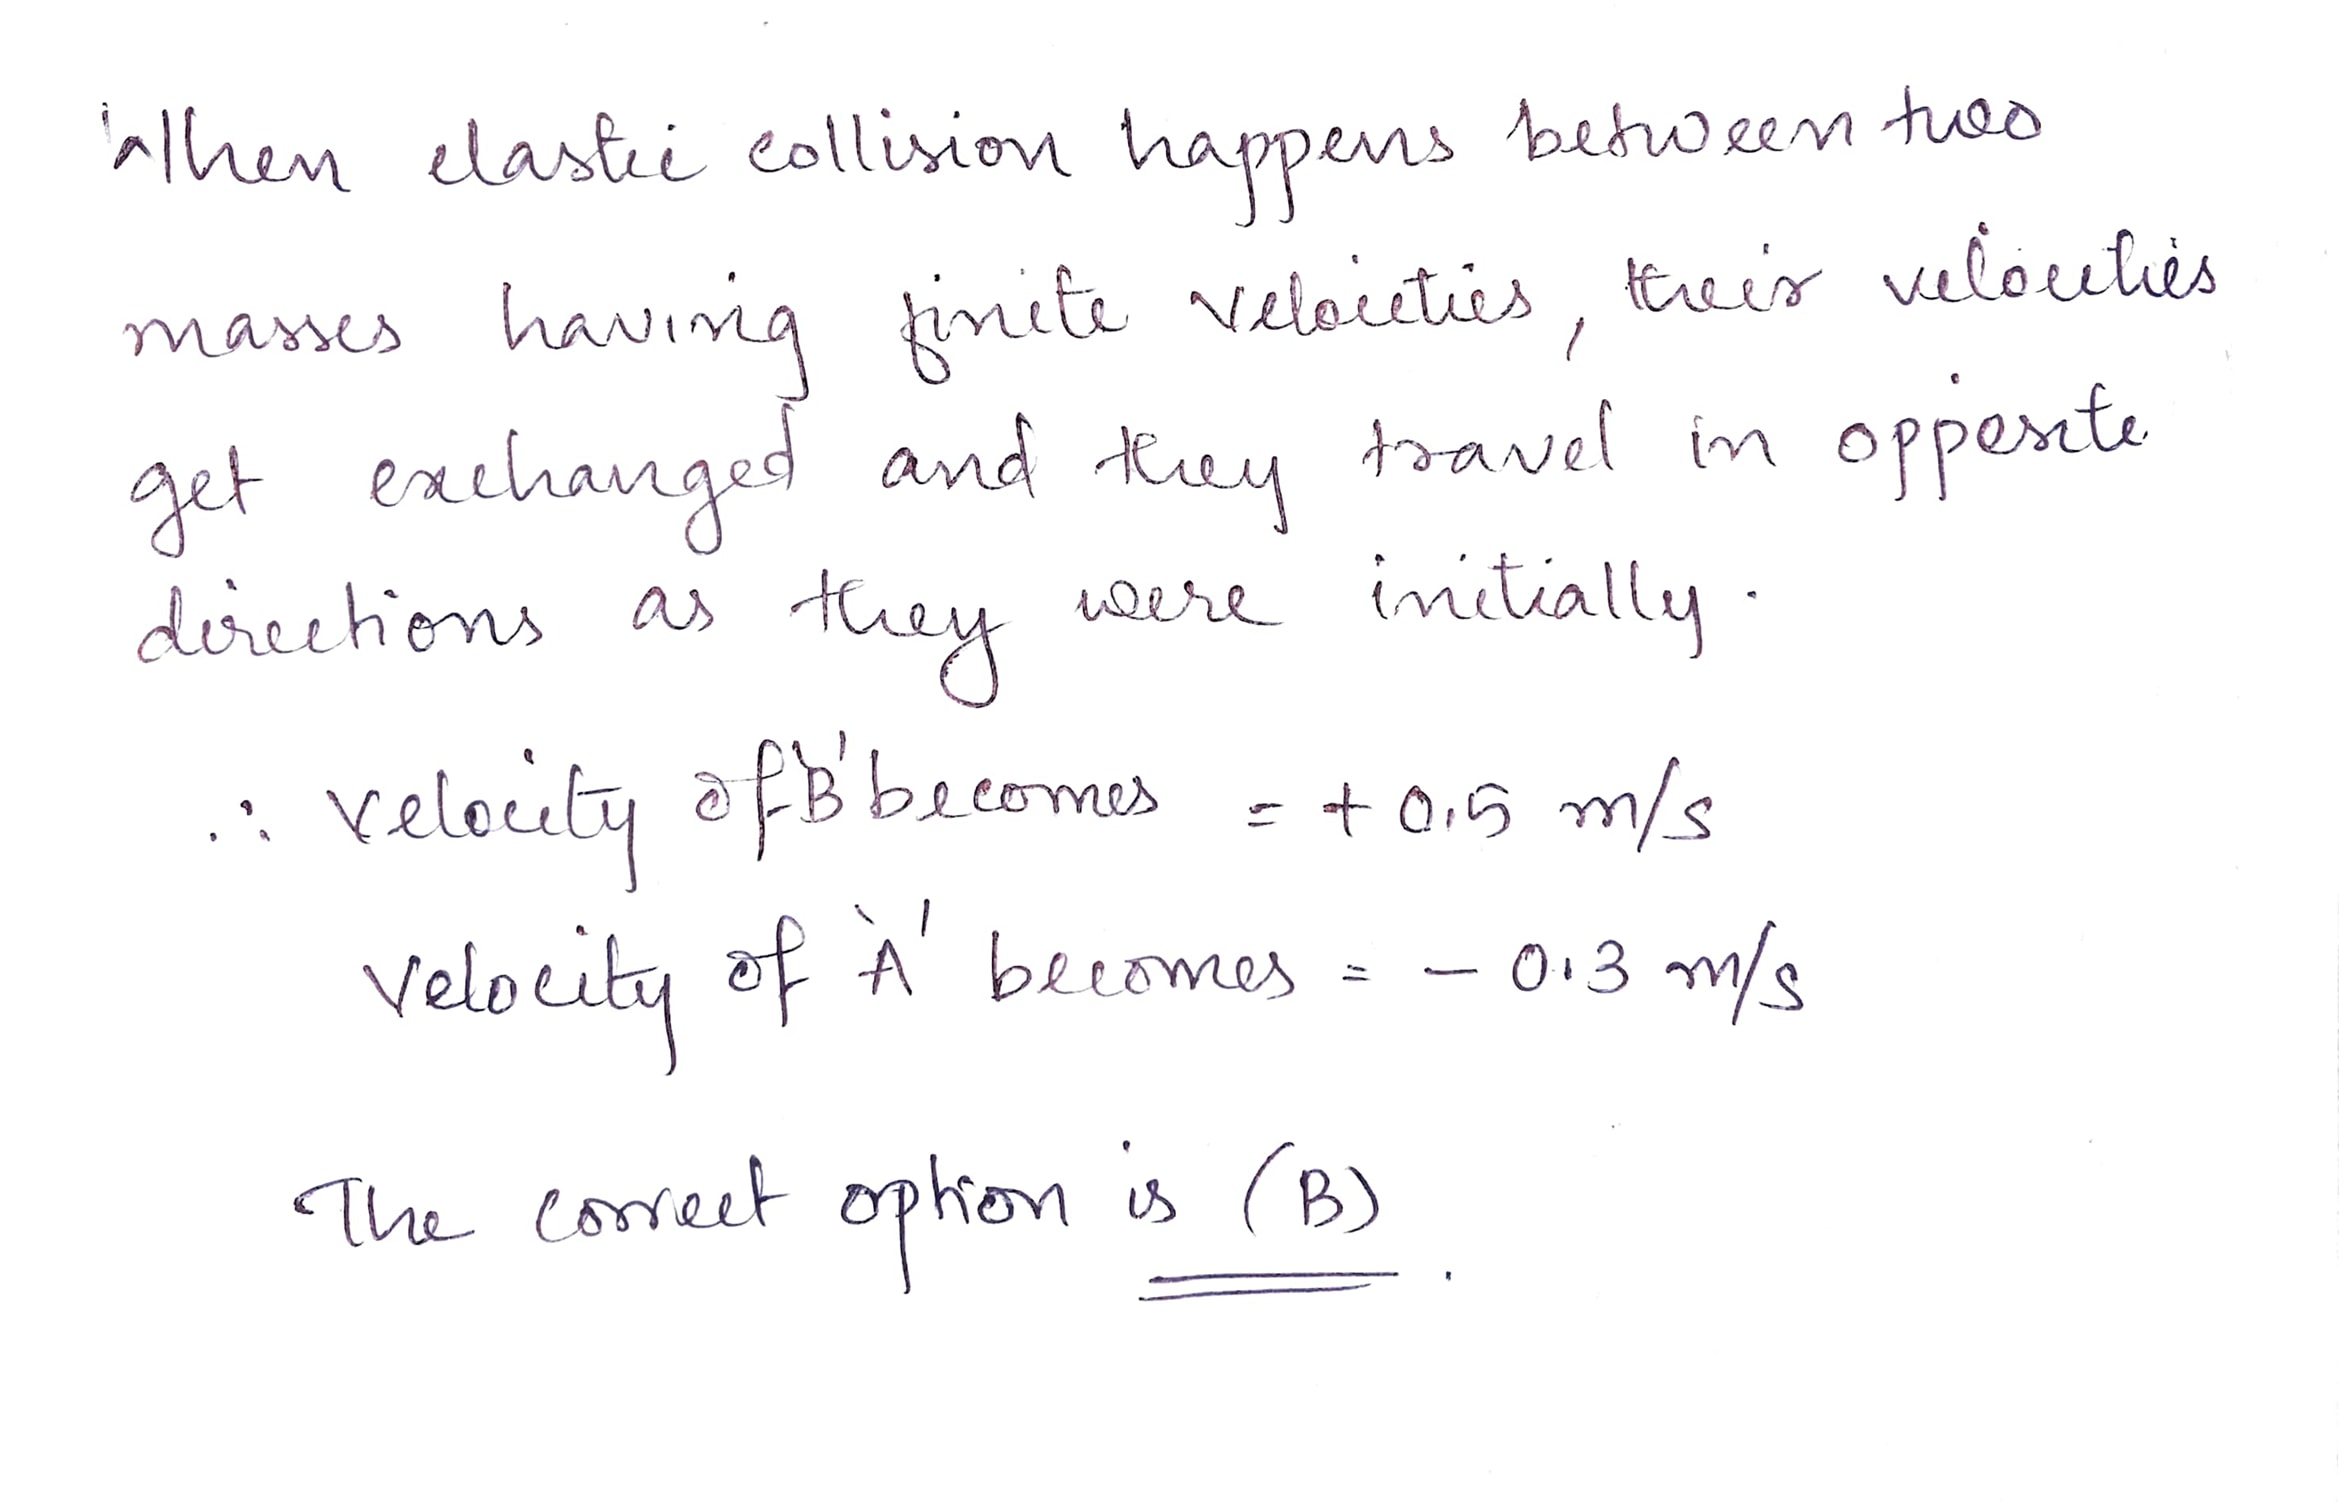 When elastic collision happens between two
masses having finite velocities, their velocities
get exchanged and they travel in opposite
directions as they were initially.
∴ Velocity of 'B' becomes = + 0.5 m/s
Velocity of 'A' becomes = - 0.3 m/s
The correct option is (B).